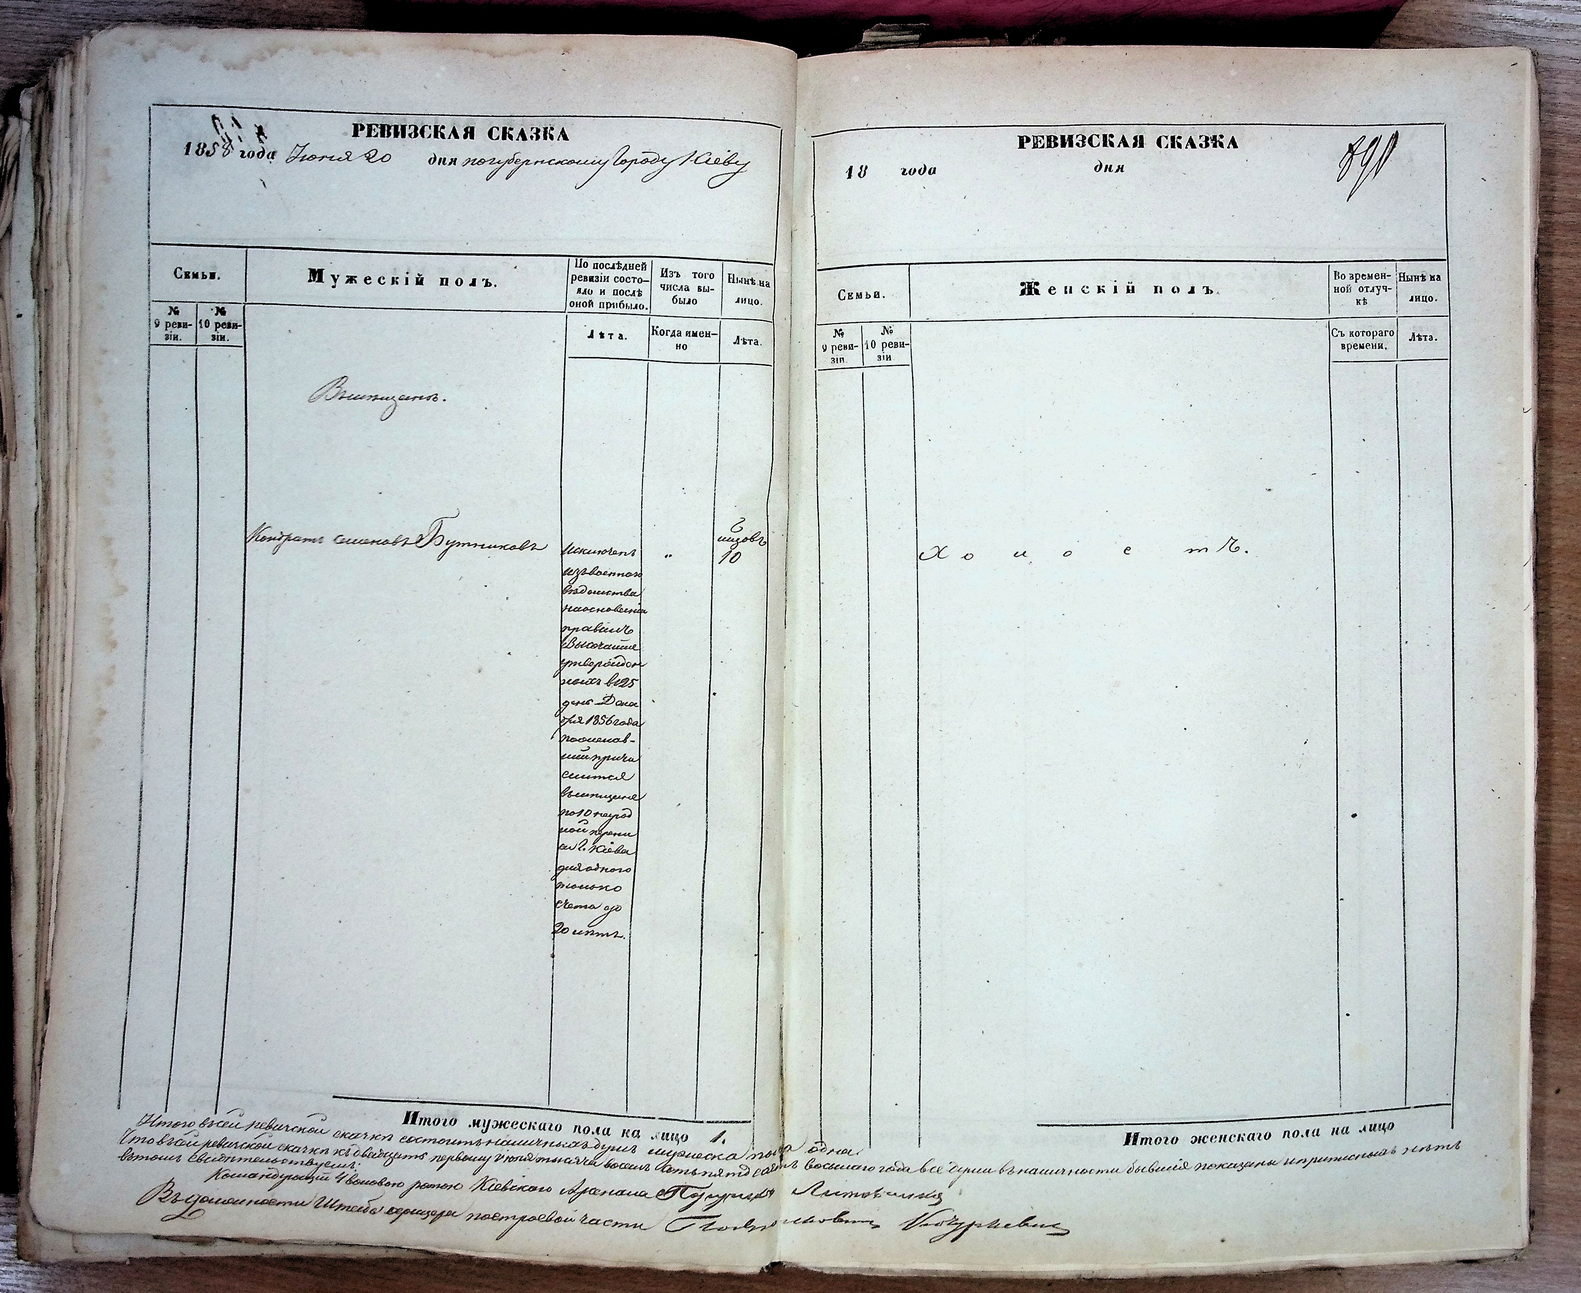 РЕВИЗСКАЯ СКАЗКА
1858 года Іюня 20 дня по губернскому Городу Кіеву
Семьи.
Мужескій полъ.
По послѣдней ревизіи состо-
яло и послѣ
оной прибыло.
Изъ того
числа вы-
было
Нынѣ на
лицо.
№
9 реви-
зіи.
№
10 реви-
зіи.
Лѣта.
Когда имен-
но
Лѣта.
Вмѣщане.
Кондратъ Семеновъ Бутниковъ
Исключенъ
изъ военнаго
вѣдомства
на основаніи
правилъ
Высочайше
утвержден
ныхъ въ 25
день Дека
бря 1856 года
причи
слится
въ мѣщане
по 10 народ
ной перепи
си г. Кіева
для одного
только
счета до
20 лѣтъ.
"
10
Итого мужескаго пола на лицо 1.
РЕВИЗСКАЯ СКАЗКА
18 года дня
890
Семьи.
Женскій полъ.
Во времен-
ной отлуч-
кѣ
Нынѣ на
лицо.
№
9 реви-
зіи.
№
10 реви-
зіи
Съ котораго
времени.
Лѣта.
Холостъ.
Итого женскаго пола на лицо
Итого въ сей ревизской сказкѣ состоитъ на лицо душъ мужеска пола одна.
Что въ сей ревизской сказкѣ къ двадцать первому Іюня тысяча восемь сотъ пятьдесятъ восьмаго года все души въ наличности бывшія показаны и прописныхъ нѣтъ
въ томъ свидѣтельствуемъ:
Командующій ротою Кіевскаго Арсенала
Въ должности Штабъ офицера по строевой части